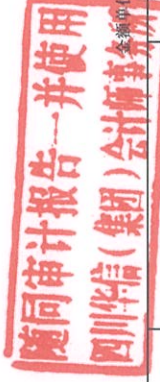 随同审计报告一并使用
四川华信(集团)会计师事务所
金额单位